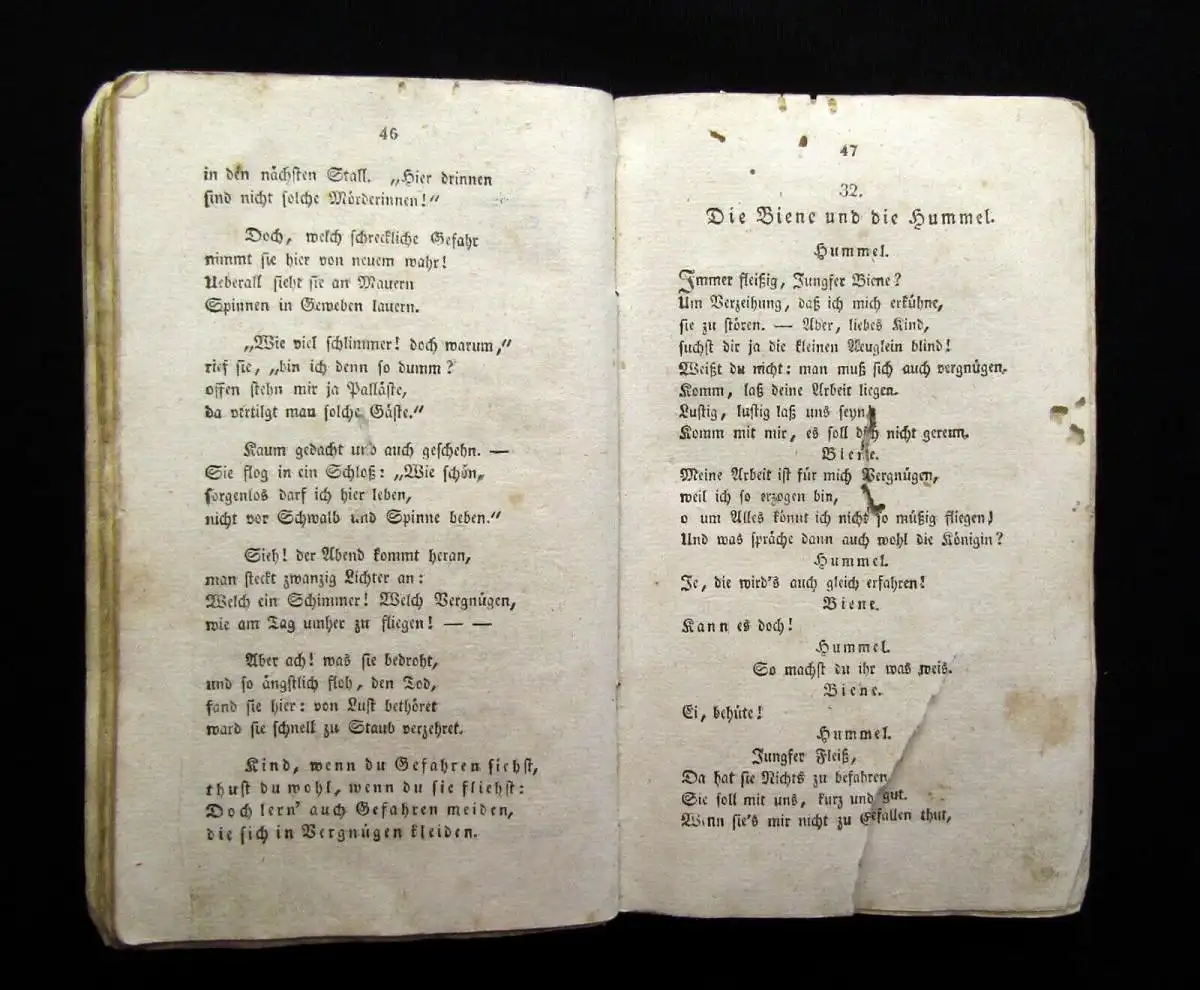 46
in den nächsten Stall. „Hier drinnen
sind nicht solche Mörderinnen!“
Doch, welch schreckliche Gefahr
nimmt sie hier von neuem wahr!
Ueberall sieht sie an Mauern
Spinnen in Geweben lauern.
„Wie viel schlimmer! doch warum,“
rief sie, „bin ich denn so dumm?
offen stehn mir ja Palläste,
da vertilgt man solche Gäste.“
Kaum gedacht und auch geschehn. —
Sie flog in ein Schloß: „Wie schön,
sorgenlos darf ich hier leben,
nicht vor Schwalb und Spinne beben.“
Sieh! der Abend kommt heran,
man steckt zwanzig Lichter an:
Welch ein Schimmer! Welch Vergnügen,
wie am Tag umher zu fliegen! — —
Aber ach! was sie bedroht,
und so ängstlich floh, den Tod,
fand sie hier: von Lust bethöret
ward sie schnell zu Staub verzehret.
Kind, wenn du Gefahren siehst,
thust du wohl, wenn du sie fliehst:
Doch lern' auch Gefahren meiden,
die sich in Vergnügen kleiden.
47
32.
Die Biene und die Hummel.
Hummel.
Immer fleißig, Jungfer Biene?
Um Verzeihung, daß ich mich erkühne,
sie zu stören. — Aber, liebes Kind,
suchst dir ja die kleinen Aeuglein blind!
Weißt du nicht: man muß sich auch vergnügen.
Komm, laß deine Arbeit liegen.
Lustig, lustig laß uns seyn
Komm mit mir, es soll dich nicht gereun.
Biene.
Meine Arbeit ist für mich Vergnügen,
weil ich so erzogen bin,
o um Alles könnt ich nicht so müßig fliegen!
Und was spräche dann auch wohl die Königin?
Hummel.
Je, die wird's auch gleich erfahren!
Biene.
Kann es doch!
Hummel.
So machst du ihr was weis.
Biene.
Ei, behüte!
Hummel.
Jungfer Fleiß,
Da hat sie Nichts zu befahren
Sie soll mit uns, kurz und gut.
Wenn sie's mir nicht zu Gefallen thut,